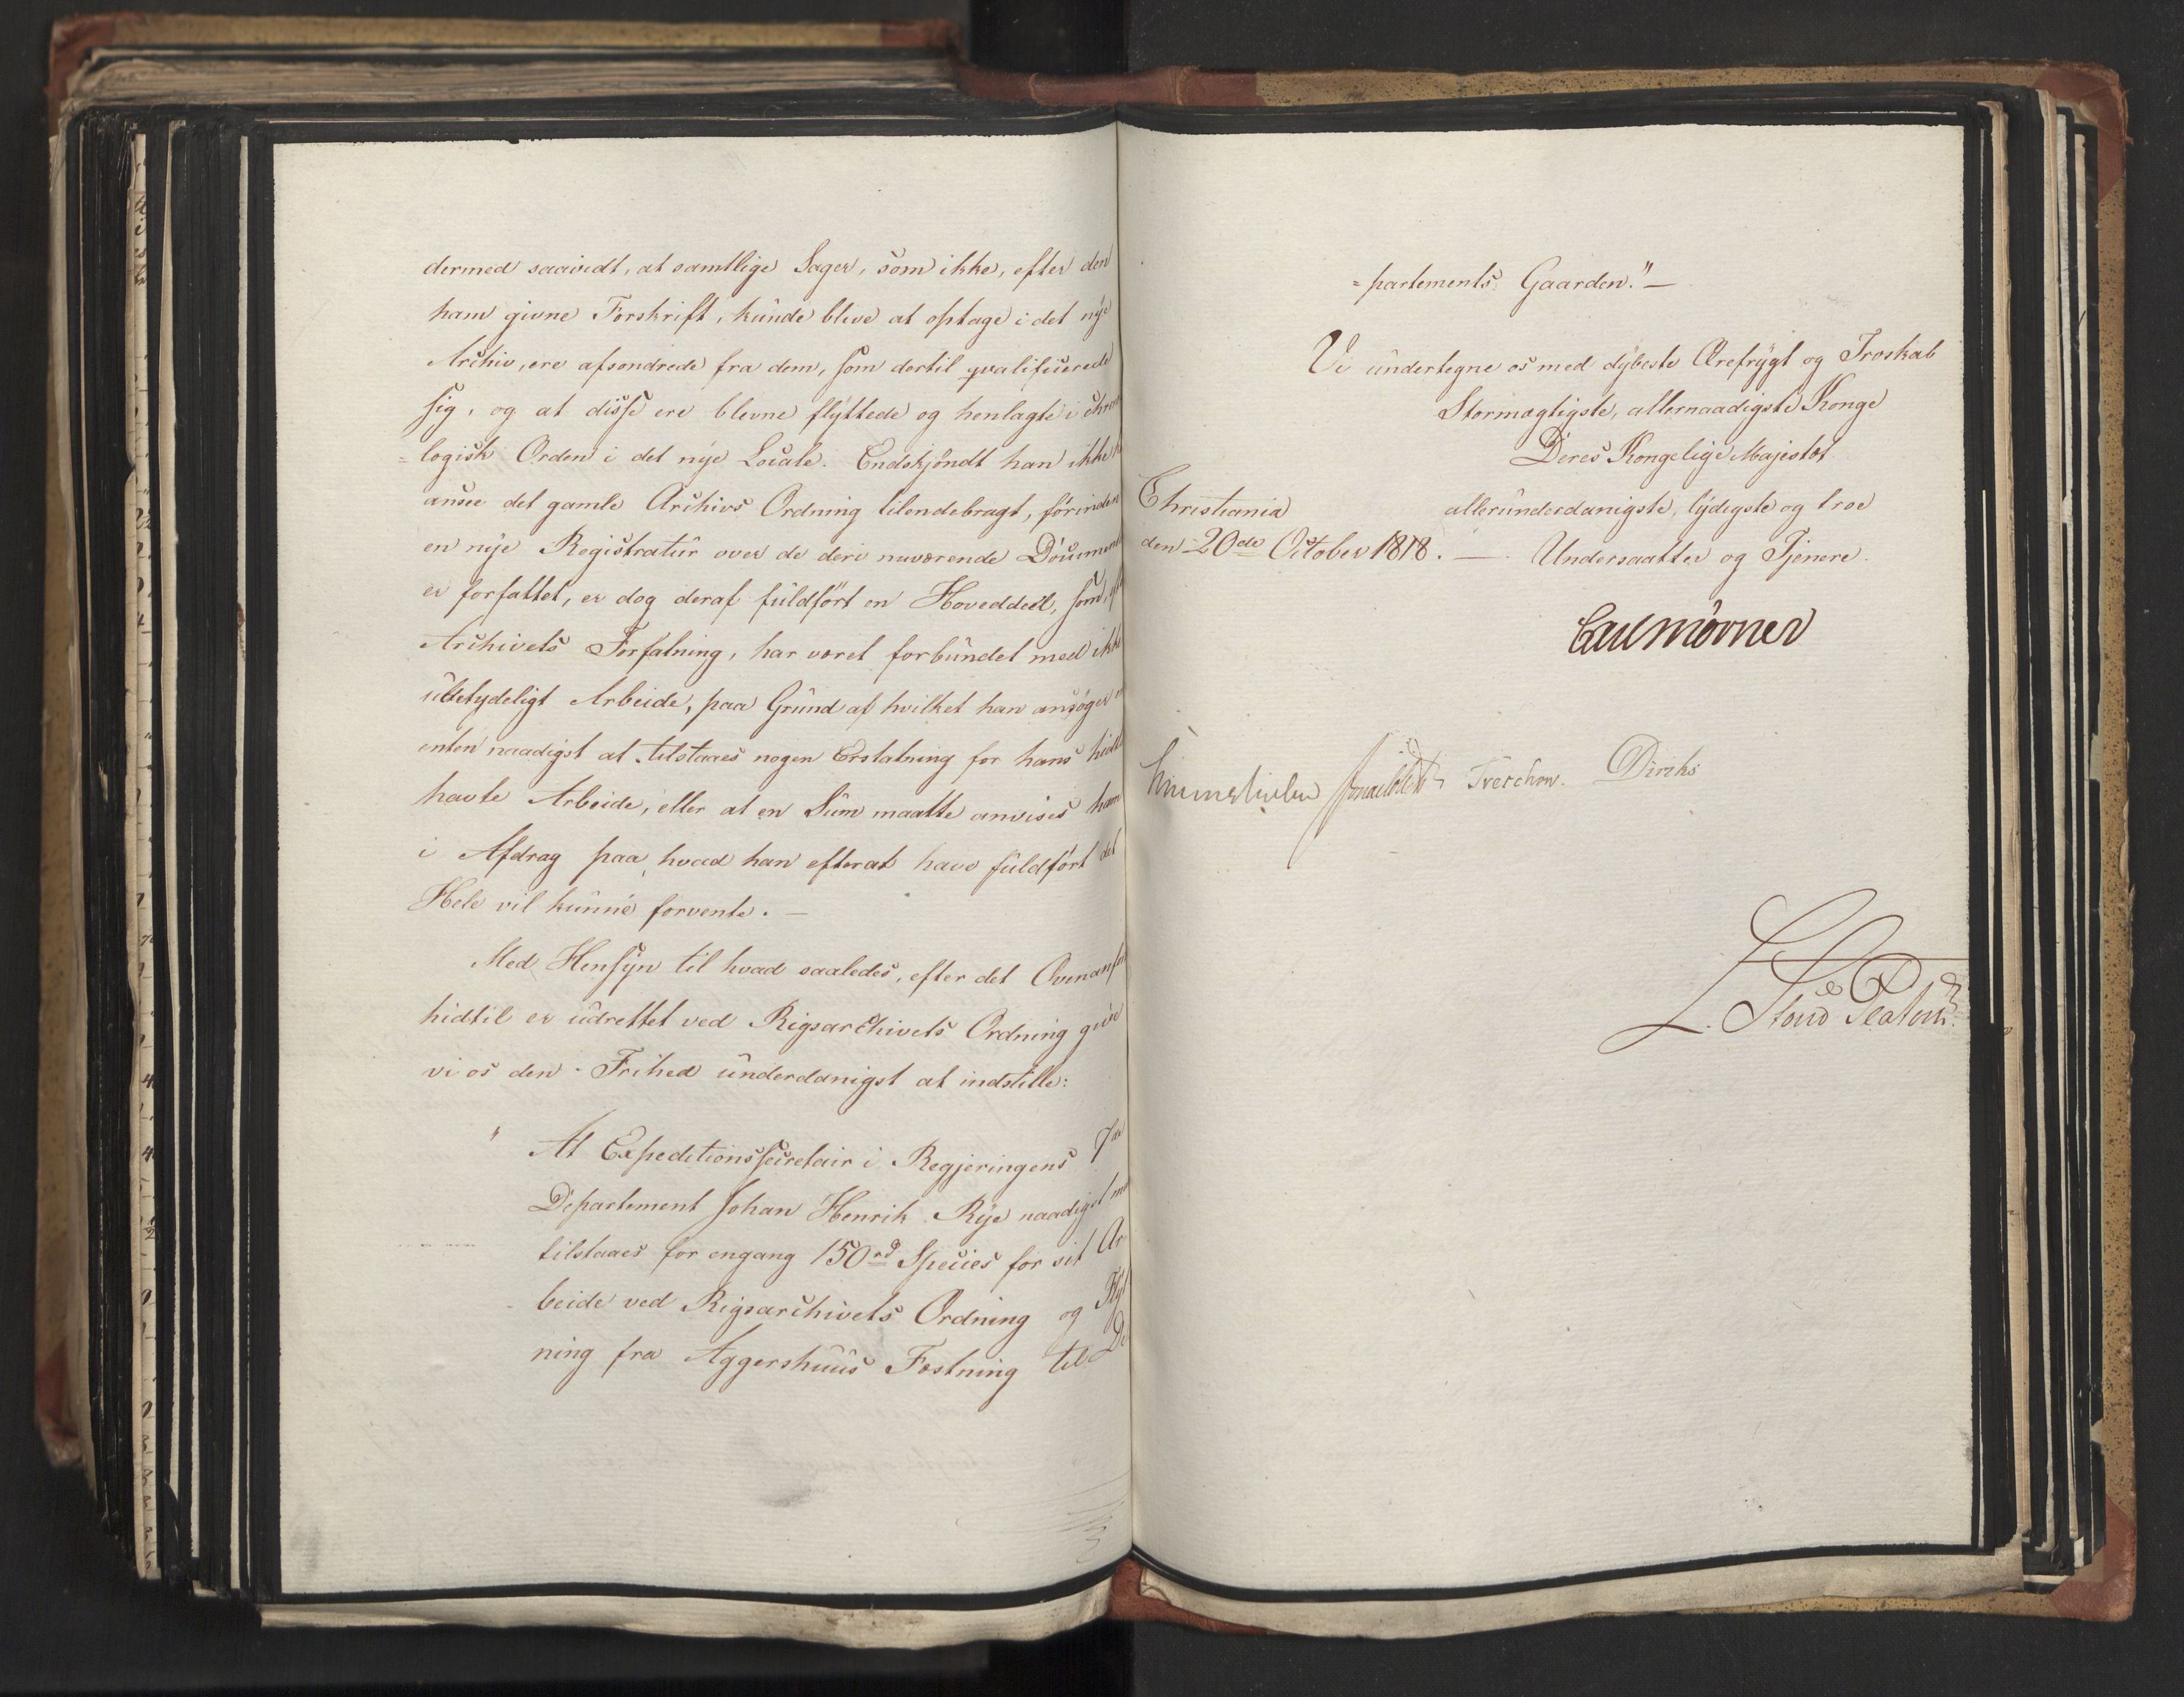 dermed saavidt, at samtlige Sager, som ikke, efter den
ham givne Forskrift, kunde blive at optage i det nye
Archiv, ere afsondrede fra dem, som dertil qvalificerede
sig, og at disse ere blevne flyttede og henlagte i chrono
=logisk Orden i det nye Locale. Endskjøndt han ikke
ansee det gamle Archivs Ordning tilendebragt, førinden
en nye Registratur over de deri nuværende Documen
er forfattet, er dog deraf fuldført en Hoveddeel, som,
Archivets Forfatning, har været forbundet med ikke
ubetydeligt Arbeide, paa Grund af hvilket han ansøger
enten naadigst at tilstaaes nogen Erstatning for hans hidtil
havte Arbeide, eller at en Sum maatte anvises ham
i Afdrag paa hvad han efterat have fuldført det
Hele vil kunne forvente. —
Med Hensyn til hvad saaledes, efter det Ovenanfø
hidtil er udrettet ved Rigsarchivets Ordning give
vi os den Frihed underdanigst at indstille:
" At Expeditionssecretair i Regjeringens 7de
Departement Johan Henrik Rye naadigst m
tilstaaes for engang 150rd Species for sit Ar
beide ved Rigsarchivets Ordning og Flyt
ning fra Aggershuus Fæstning til De
=partements Gaarden." —
Vi undertegne os med dybeste Ærefrygt og Troskab
Stormægtigste, allernaadigste Konge
Deres Kongelige Majestæt
Christiania allerunderdanigste, lydigste og troe
den 20de October 1818. — Undersaatter og Tjenere.
Carl Mörner
Sommerhielm Treschow. Diriks